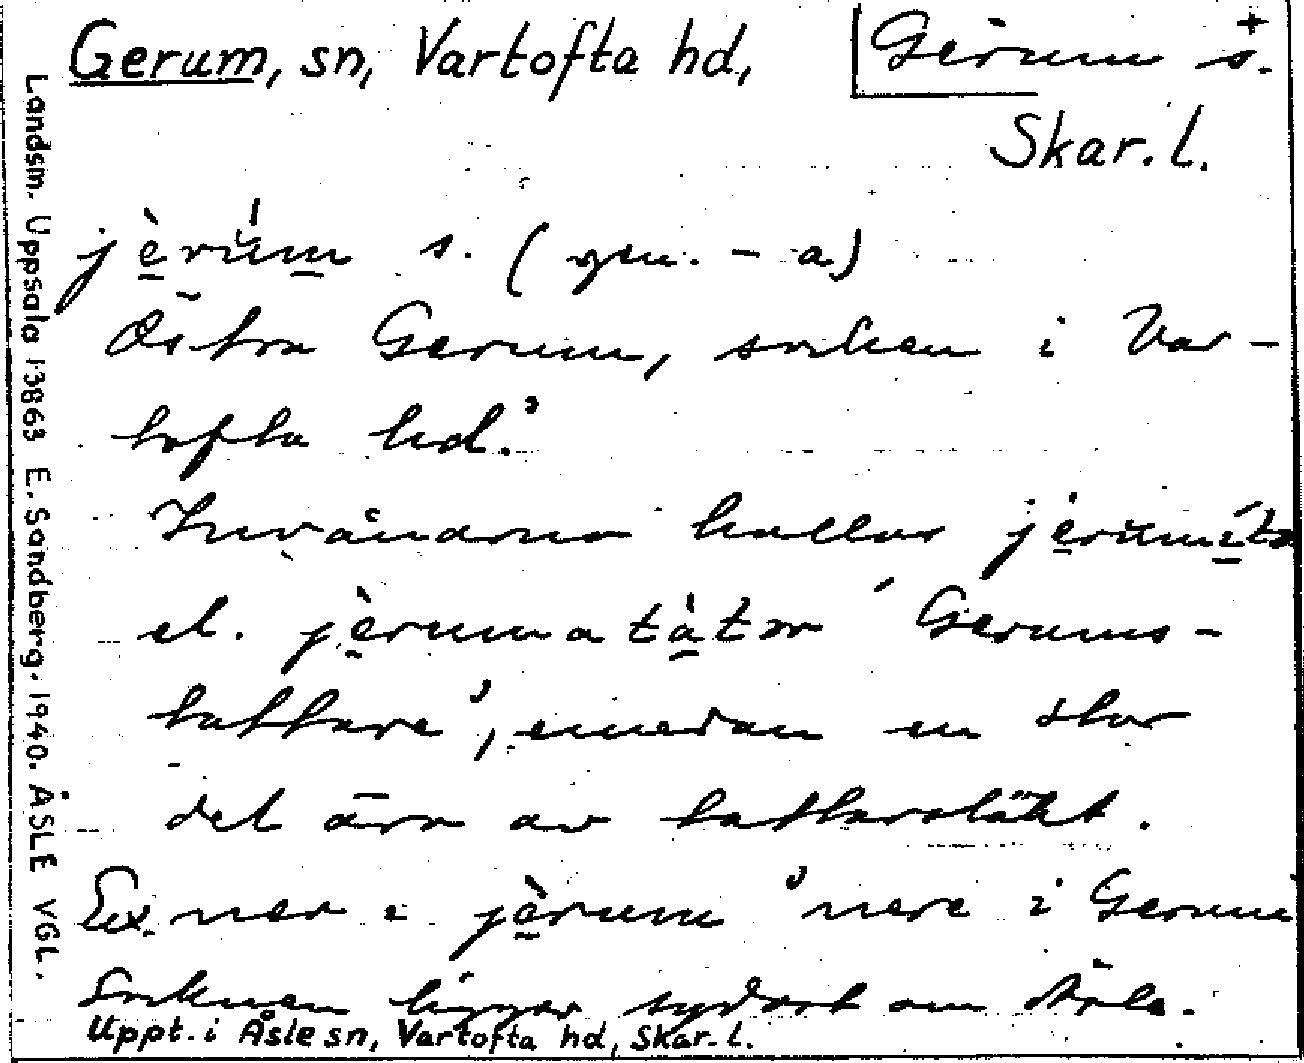 Gerum, sn, Vartofta hd, Gerum s.
Skar. l.
jèrúm s. (gen. - a)
Östra Gerum, socken i Var-
tofta hd.'
Invånarna kallas
el. jèrumatàtər 'Gerums-
tattare', emedan en stor
del äro av tattarsläkt.
Ex. ner i jèrum 'nere i Gerum
Socknen ligger sydost om Åsle.
Uppt. i Åsle sn, Vartofta hd, Skar. l.
Landsm. Uppsala 13863 E. Sandberg. 1940. ÅSLE VGL.